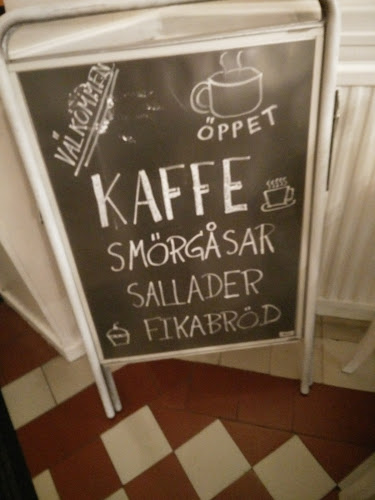 VÄLKOMMEN
ÖPPET
KAFFE
SMÖRGÅSAR
SALLADER
FIKABRÖD